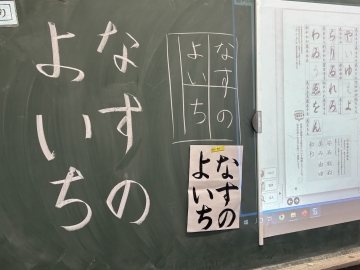 なすの
よいち
なすの
よいち
なすの
よいち
やいゆえよ
らりるれろ
わゐうゑをん